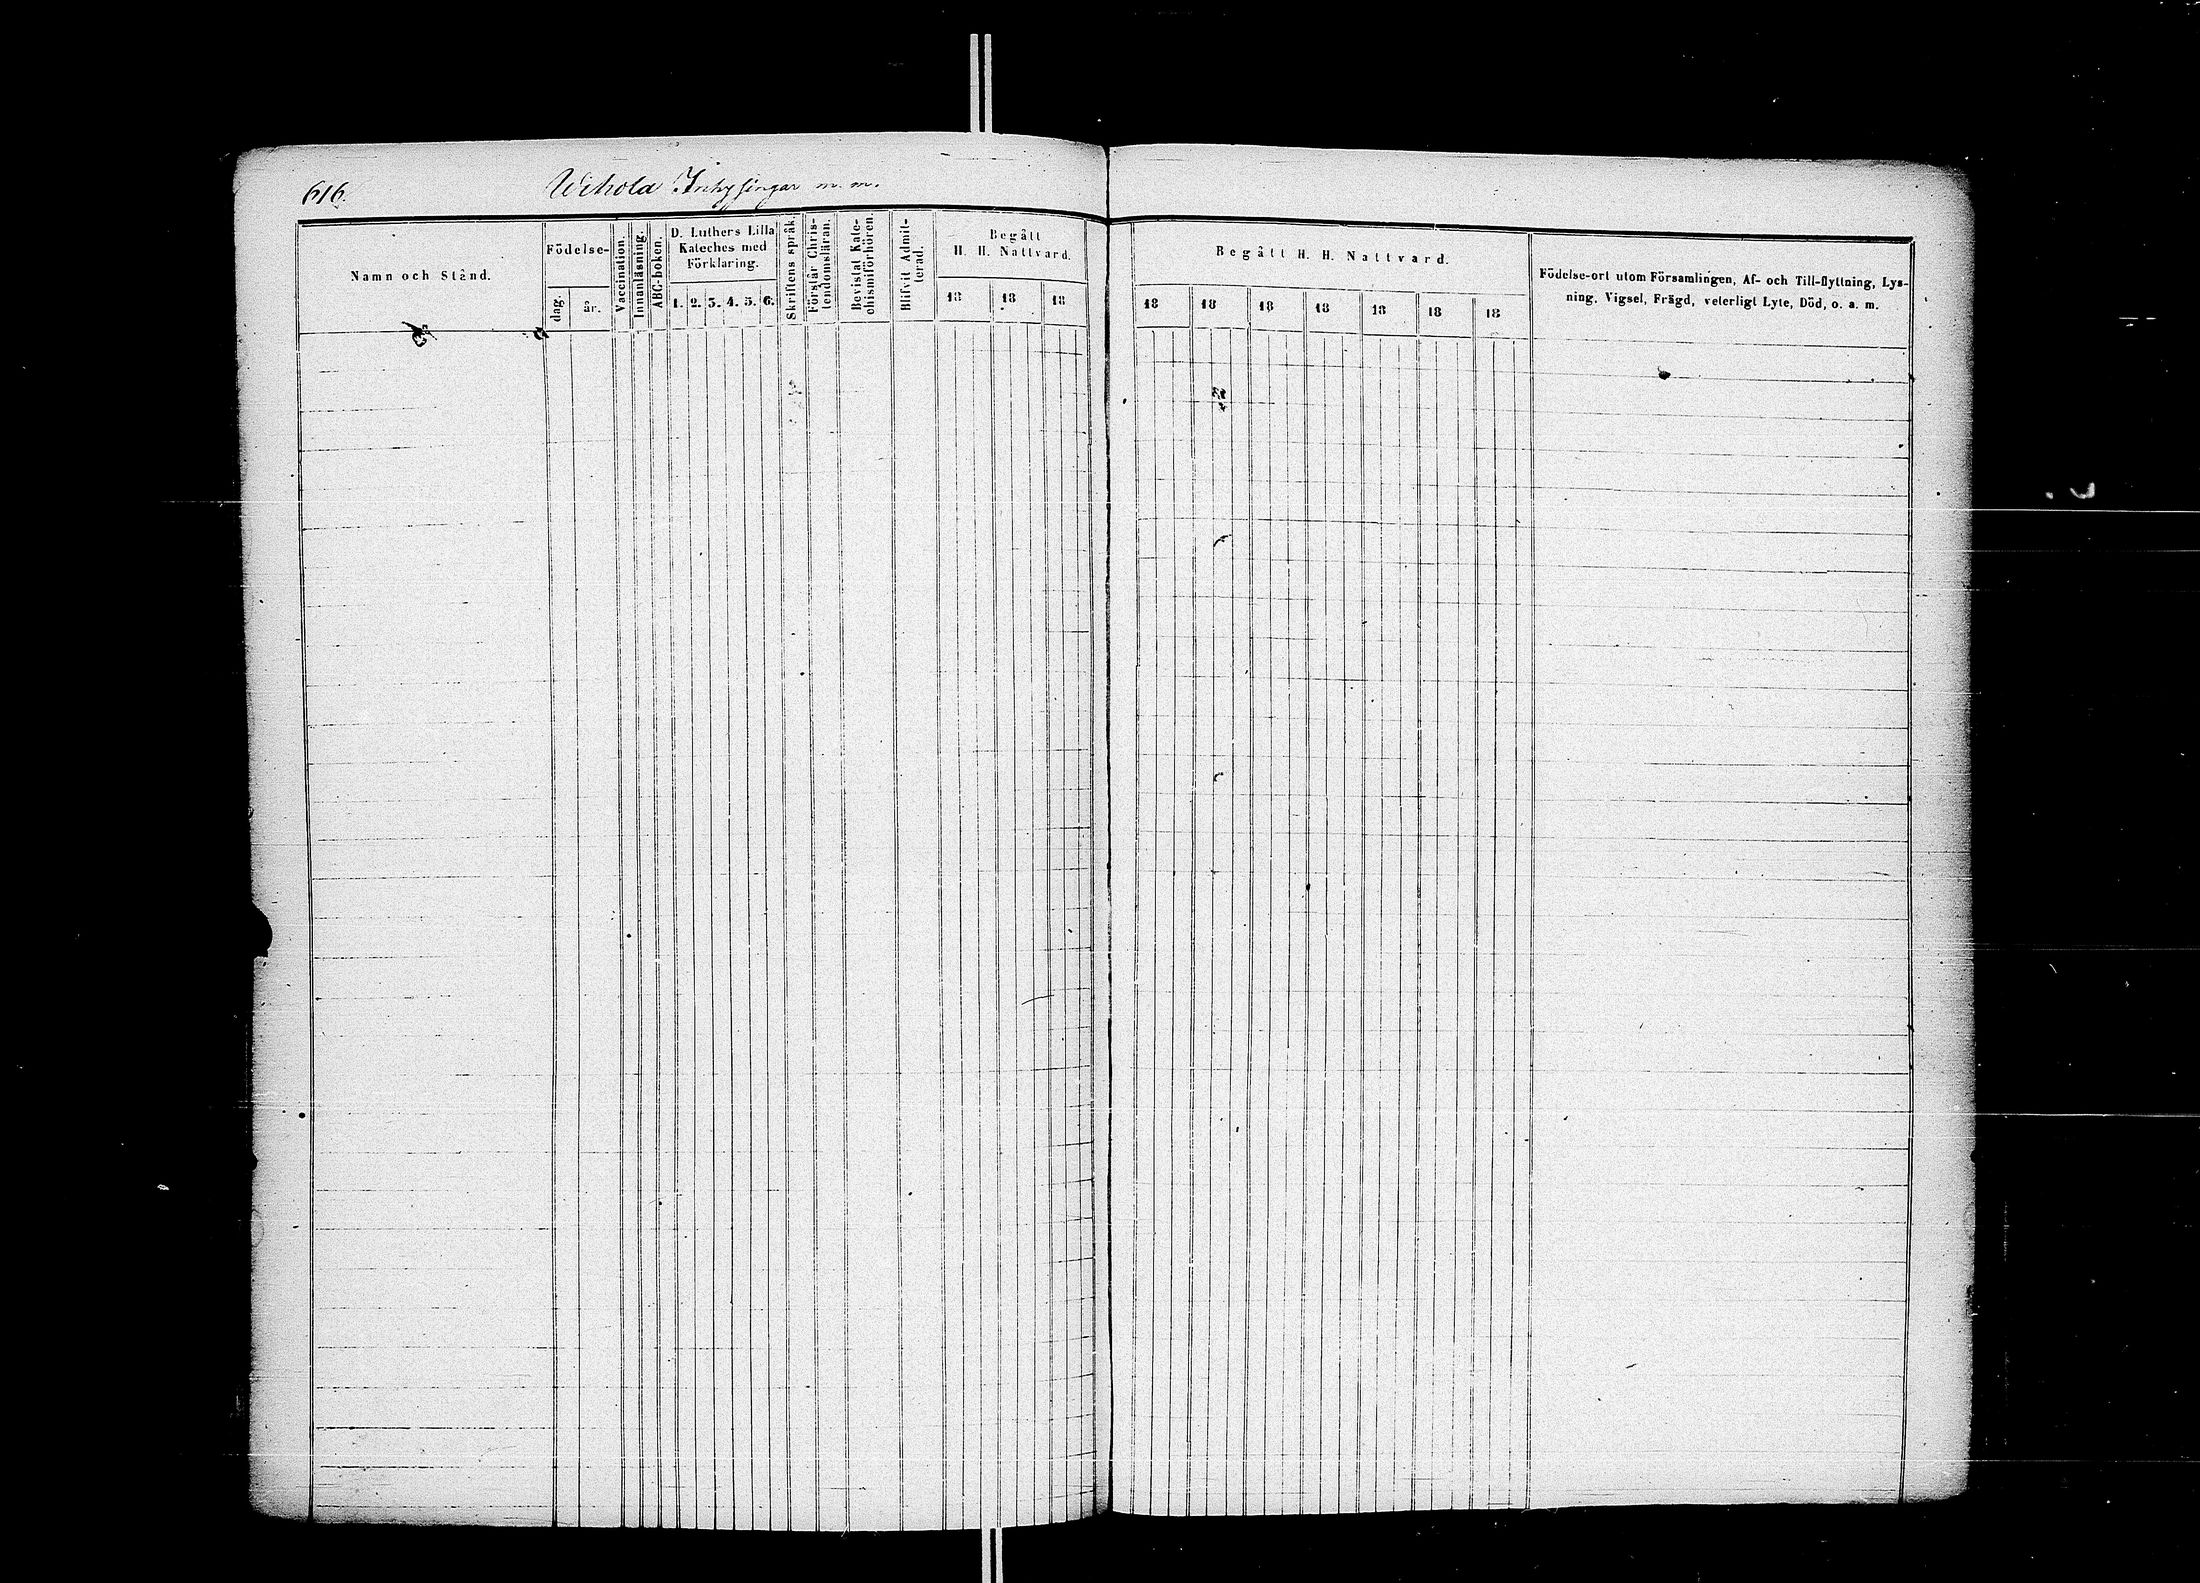 616.
Wehola Inhysingar m. m.
Namn och Stånd.
Födelse-
dag.
år.
Vaccination.
Innanläsning.
ABC-boken.
D. Luthers Lilla
Kateches med
Förklaring.
1. 2. 3. 4. 5. 6.
Skriftens språk.
Förstår Chris-
tendomsläran.
Bevistat Kate-
chismiförhören.
Blifvit Admit-
terad.
Begått
H. H. Nattvard.
18 18 18
Begått H. H. Nattvard.
18 18 18 18 18 18 18
Födelse-ort utom Församlingen, Af- och Till-flyttning, Lys-
ning, Vigsel, Frägd, veterligt Lyte, Död, o. a. m.